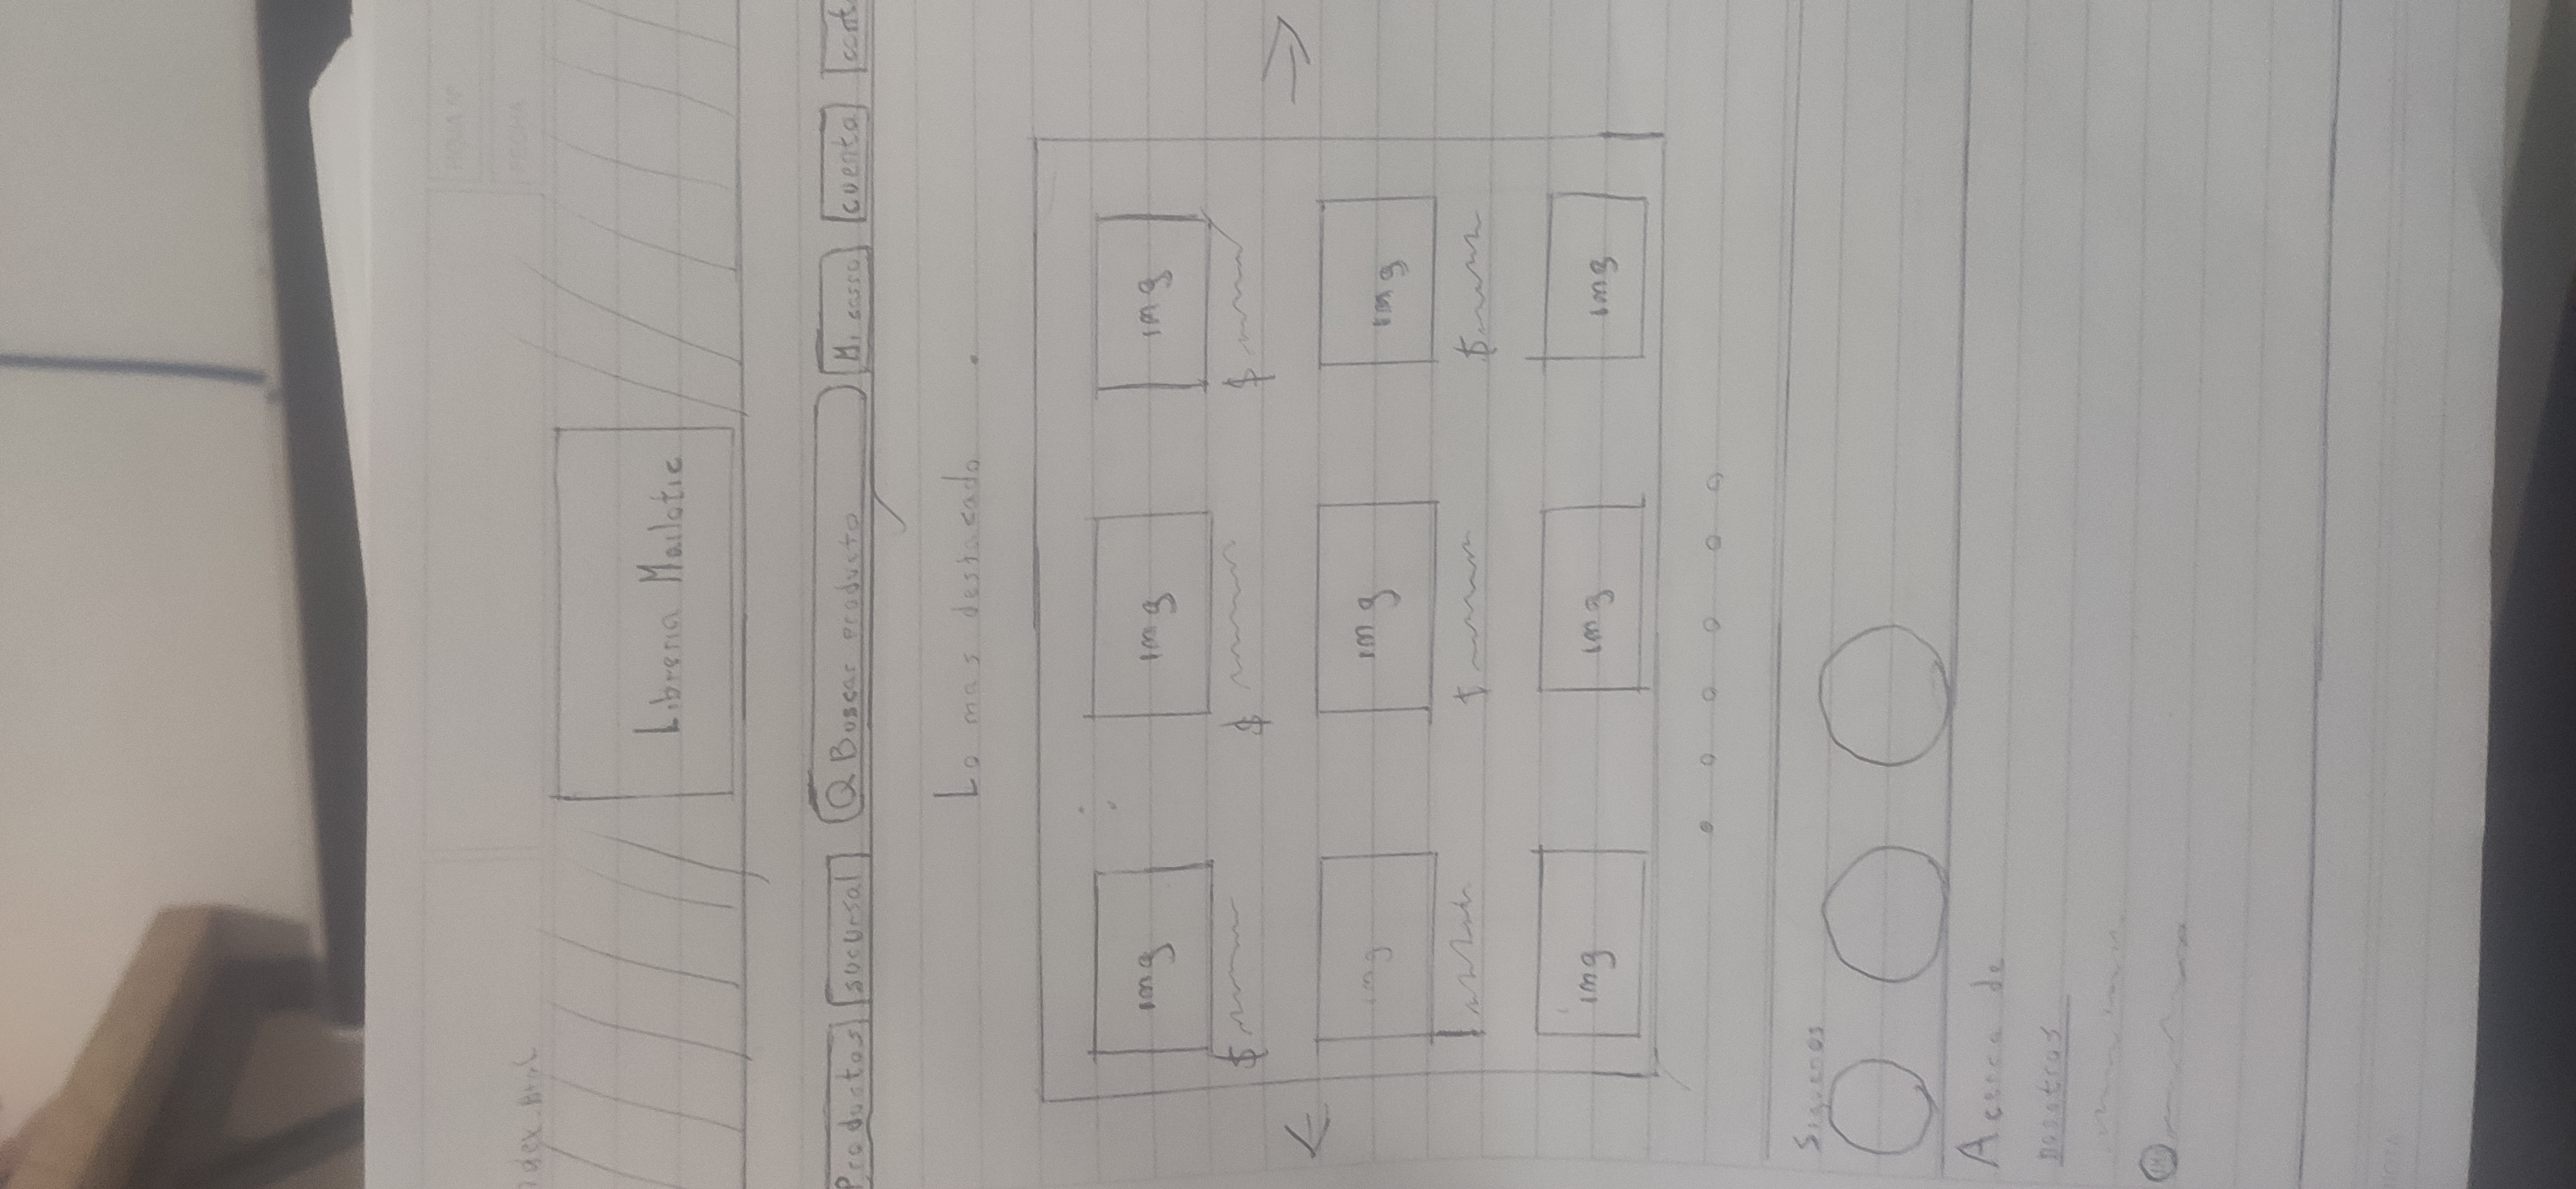 ndex.html
HOJA N°
FECHA
Libreria Mailotic
Productos sucursal Buscar producto Mi carro cuenta cont
Lo mas destacado
img img img
$ $ $
img img img
$ $
img img img
Siguenos
Acerca de
nosotros
NOTA